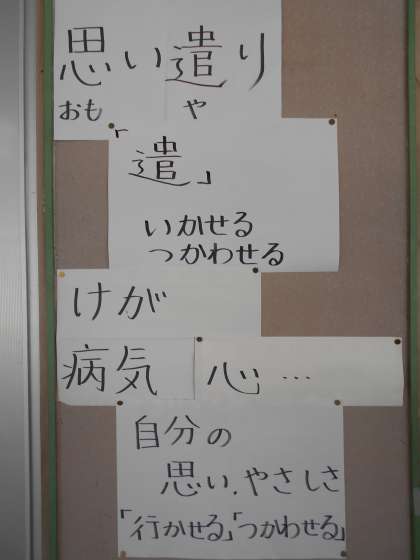 思い遣り
おも や
「遣」
いかせる
つかわせる
けが
病気 心…
自分の
思い.やさしさ
「行かせる」「つかわせる」